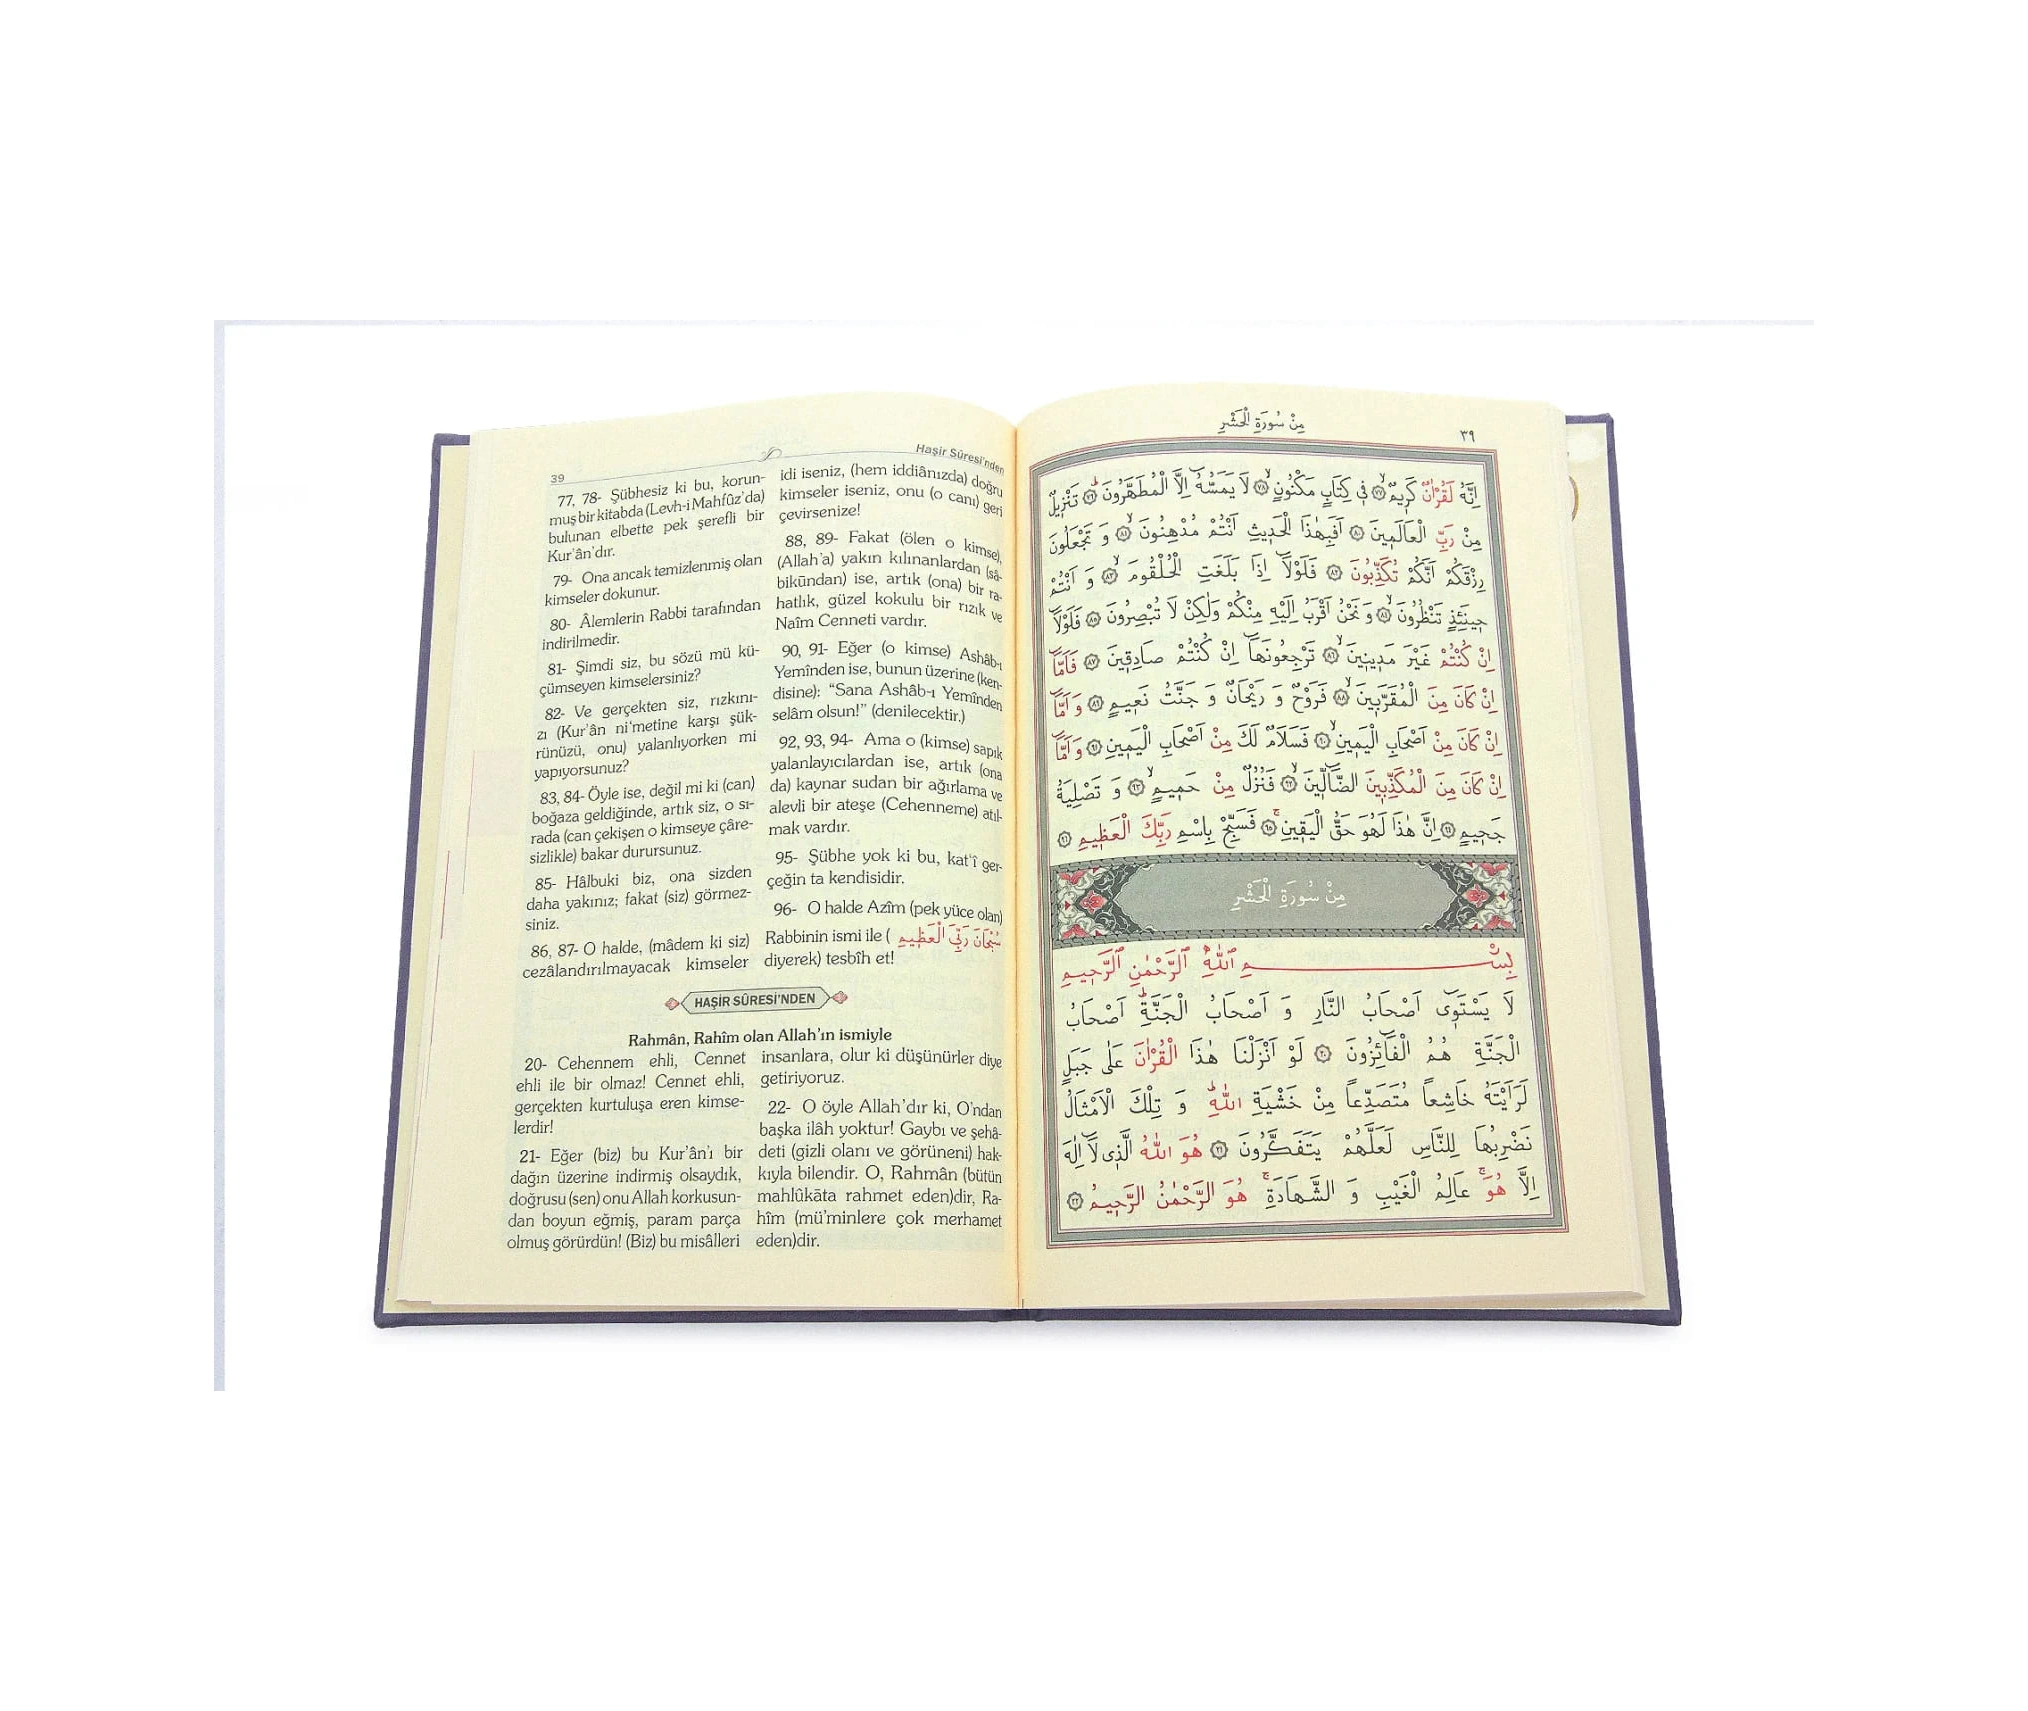 39
Haşir Sûresi'nden
77, 78- Şübhesiz ki bu, korun-
muş bir kitabda (Levh-i Mahfûz'da)
bulunan elbette pek şerefli bir
Kur'ân'dır.
79- Ona ancak temizlenmiş olan
kimseler dokunur.
80- Âlemlerin Rabbi tarafından
indirilmedir.
81- Şimdi siz, bu sözü mü kü-
çümseyen kimselersiniz?
82- Ve gerçekten siz, rızkını-
zı (Kur'ân ni'metine karşı şük-
rünüzü, onu) yalanlıyorken mi
yapıyorsunuz?
83, 84- Öyle ise, değil mi ki (can)
boğaza geldiğinde, artık siz, o sı-
rada (can çekişen o kimseye çâre-
sizlikle) bakar durursunuz.
85- Hâlbuki biz, ona sizden
daha yakınız; fakat (siz) görmez-
siniz.
86, 87- O halde, (mâdem ki siz)
cezâlandırılmayacak kimseler
idi iseniz, (hem iddiânızda) doğru
kimseler iseniz, onu (o canı) geri
çevirsenize!
88, 89- Fakat (ölen o kimse),
(Allah'a) yakın kılınanlardan (sâ-
bikūndan) ise, artık (ona) bir ra-
hatlık, güzel kokulu bir rızık ve
Naîm Cenneti vardır.
90, 91- Eğer (o kimse) Ashâb-ı
Yemînden ise, bunun üzerine (ken-
disine): "Sana Ashâb-ı Yemînden
selâm olsun!" (denilecektir.)
92, 93, 94- Ama o (kimse) sapık
yalanlayıcılardan ise, artık (ona
da) kaynar sudan bir ağırlama ve
alevli bir ateşe (Cehenneme) atıl-
mak vardır.
95- Şübhe yok ki bu, kat'î ger-
çeğin ta kendisidir.
96- O halde Azîm (pek yüce olan)
Rabbinin ismi ile ( سُبْحَانَ رَبِّيَ الْعَظِيمِ
diyerek) tesbîh et!
HAŞİR SÛRESİ'NDEN
Rahmân, Rahîm olan Allah'ın ismiyle
20- Cehennem ehli, Cennet
ehli ile bir olmaz! Cennet ehli,
gerçekten kurtuluşa eren kimse-
lerdir!
21- Eğer (biz) bu Kur'ân'ı bir
dağın üzerine indirmiş olsaydık,
doğrusu (sen) onu Allah korkusun-
dan boyun eğmiş, param parça
olmuş görürdün! (Biz) bu misâlleri
insanlara, olur ki düşünürler diye
getiriyoruz.
22- O öyle Allah'dır ki, O'ndan
başka ilâh yoktur! Gaybı ve şehâ-
deti (gizli olanı ve görüneni) hak-
kıyla bilendir. O, Rahmân (bütün
mahlûkāta rahmet eden)dir, Ra-
hîm (mü'minlere çok merhamet
eden)dir.
مِنْ سُورَةِ الْحَشْرِ
٣٩
اِنَّهُ لَقُرْاٰنٌ كَرِيمٌۙ ٧٧ فِي كِتَابٍ مَكْنُونٍۙ ٧٨ لَا يَمَسُّهُٓ اِلَّا الْمُطَهَّرُونَۜ ٧٩ تَنْزِيلٌ
مِنْ رَبِّ الْعَالَمِينَ ٨٠ اَفَبِهٰذَا الْحَدِيثِ اَنْتُمْ مُدْهِنُونَۙ ٨١ وَ تَجْعَلُونَ
رِزْقَكُمْ اَنَّكُمْ تُكَذِّبُونَ ٨٢ فَلَوْلَٓا اِذَا بَلَغَتِ الْحُلْقُومَۙ ٨٣ وَ اَنْتُمْ
حِينَئِذٍ تَنْظُرُونَۙ ٨٤ وَ نَحْنُ اَقْرَبُ اِلَيْهِ مِنْكُمْ وَلٰكِنْ لَا تُبْصِرُونَ ٨٥ فَلَوْلَٓا
اِنْ كُنْتُمْ غَيْرَ مَدِينِينَۙ ٨٦ تَرْجِعُونَهَٓا اِنْ كُنْتُمْ صَادِقِينَ ٨٧ فَاَمَّٓا
اِنْ كَانَ مِنَ الْمُقَرَّبِينَۙ ٨٨ فَرَوْحٌ وَ رَيْحَانٌ وَ جَنَّتُ نَعِيمٍ ٨٩ وَ اَمَّٓا
اِنْ كَانَ مِنْ اَصْحَابِ الْيَمِينِۙ ٩٠ فَسَلَامٌ لَكَ مِنْ اَصْحَابِ الْيَمِينِ ٩١ وَ اَمَّٓا
اِنْ كَانَ مِنَ الْمُكَذِّبِينَ الضَّٓالِّينَۙ ٩٢ فَنُزُلٌ مِنْ حَمِيمٍۙ ٩٣ وَ تَصْلِيَةُ
جَحِيمٍ ٩٤ اِنَّ هٰذَا لَهُوَ حَقُّ الْيَقِينِۚ ٩٥ فَسَبِّحْ بِاسْمِ رَبِّكَ الْعَظِيمِ ٩٦
مِنْ سُورَةِ الْحَشْرِ
بِسْمِ اللّٰهِ الرَّحْمٰنِ الرَّحِيمِ
لَا يَسْتَوِٓي اَصْحَابُ النَّارِ وَ اَصْحَابُ الْجَنَّةِۜ اَصْحَابُ
الْجَنَّةِ هُمُ الْفَٓائِزُونَ ٢٠ لَوْ اَنْزَلْنَا هٰذَا الْقُرْاٰنَ عَلٰى جَبَلٍ
لَرَاَيْتَهُ خَاشِعاً مُتَصَدِّعاً مِنْ خَشْيَةِ اللّٰهِۜ وَ تِلْكَ الْاَمْثَالُ
نَضْرِبُهَا لِلنَّاسِ لَعَلَّهُمْ يَتَفَكَّرُونَ ٢١ هُوَ اللّٰهُ الَّذِي لَٓا اِلٰهَ
اِلَّا هُوَۚ عَالِمُ الْغَيْبِ وَ الشَّهَادَةِۚ هُوَ الرَّحْمٰنُ الرَّحِيمُ ٢٢